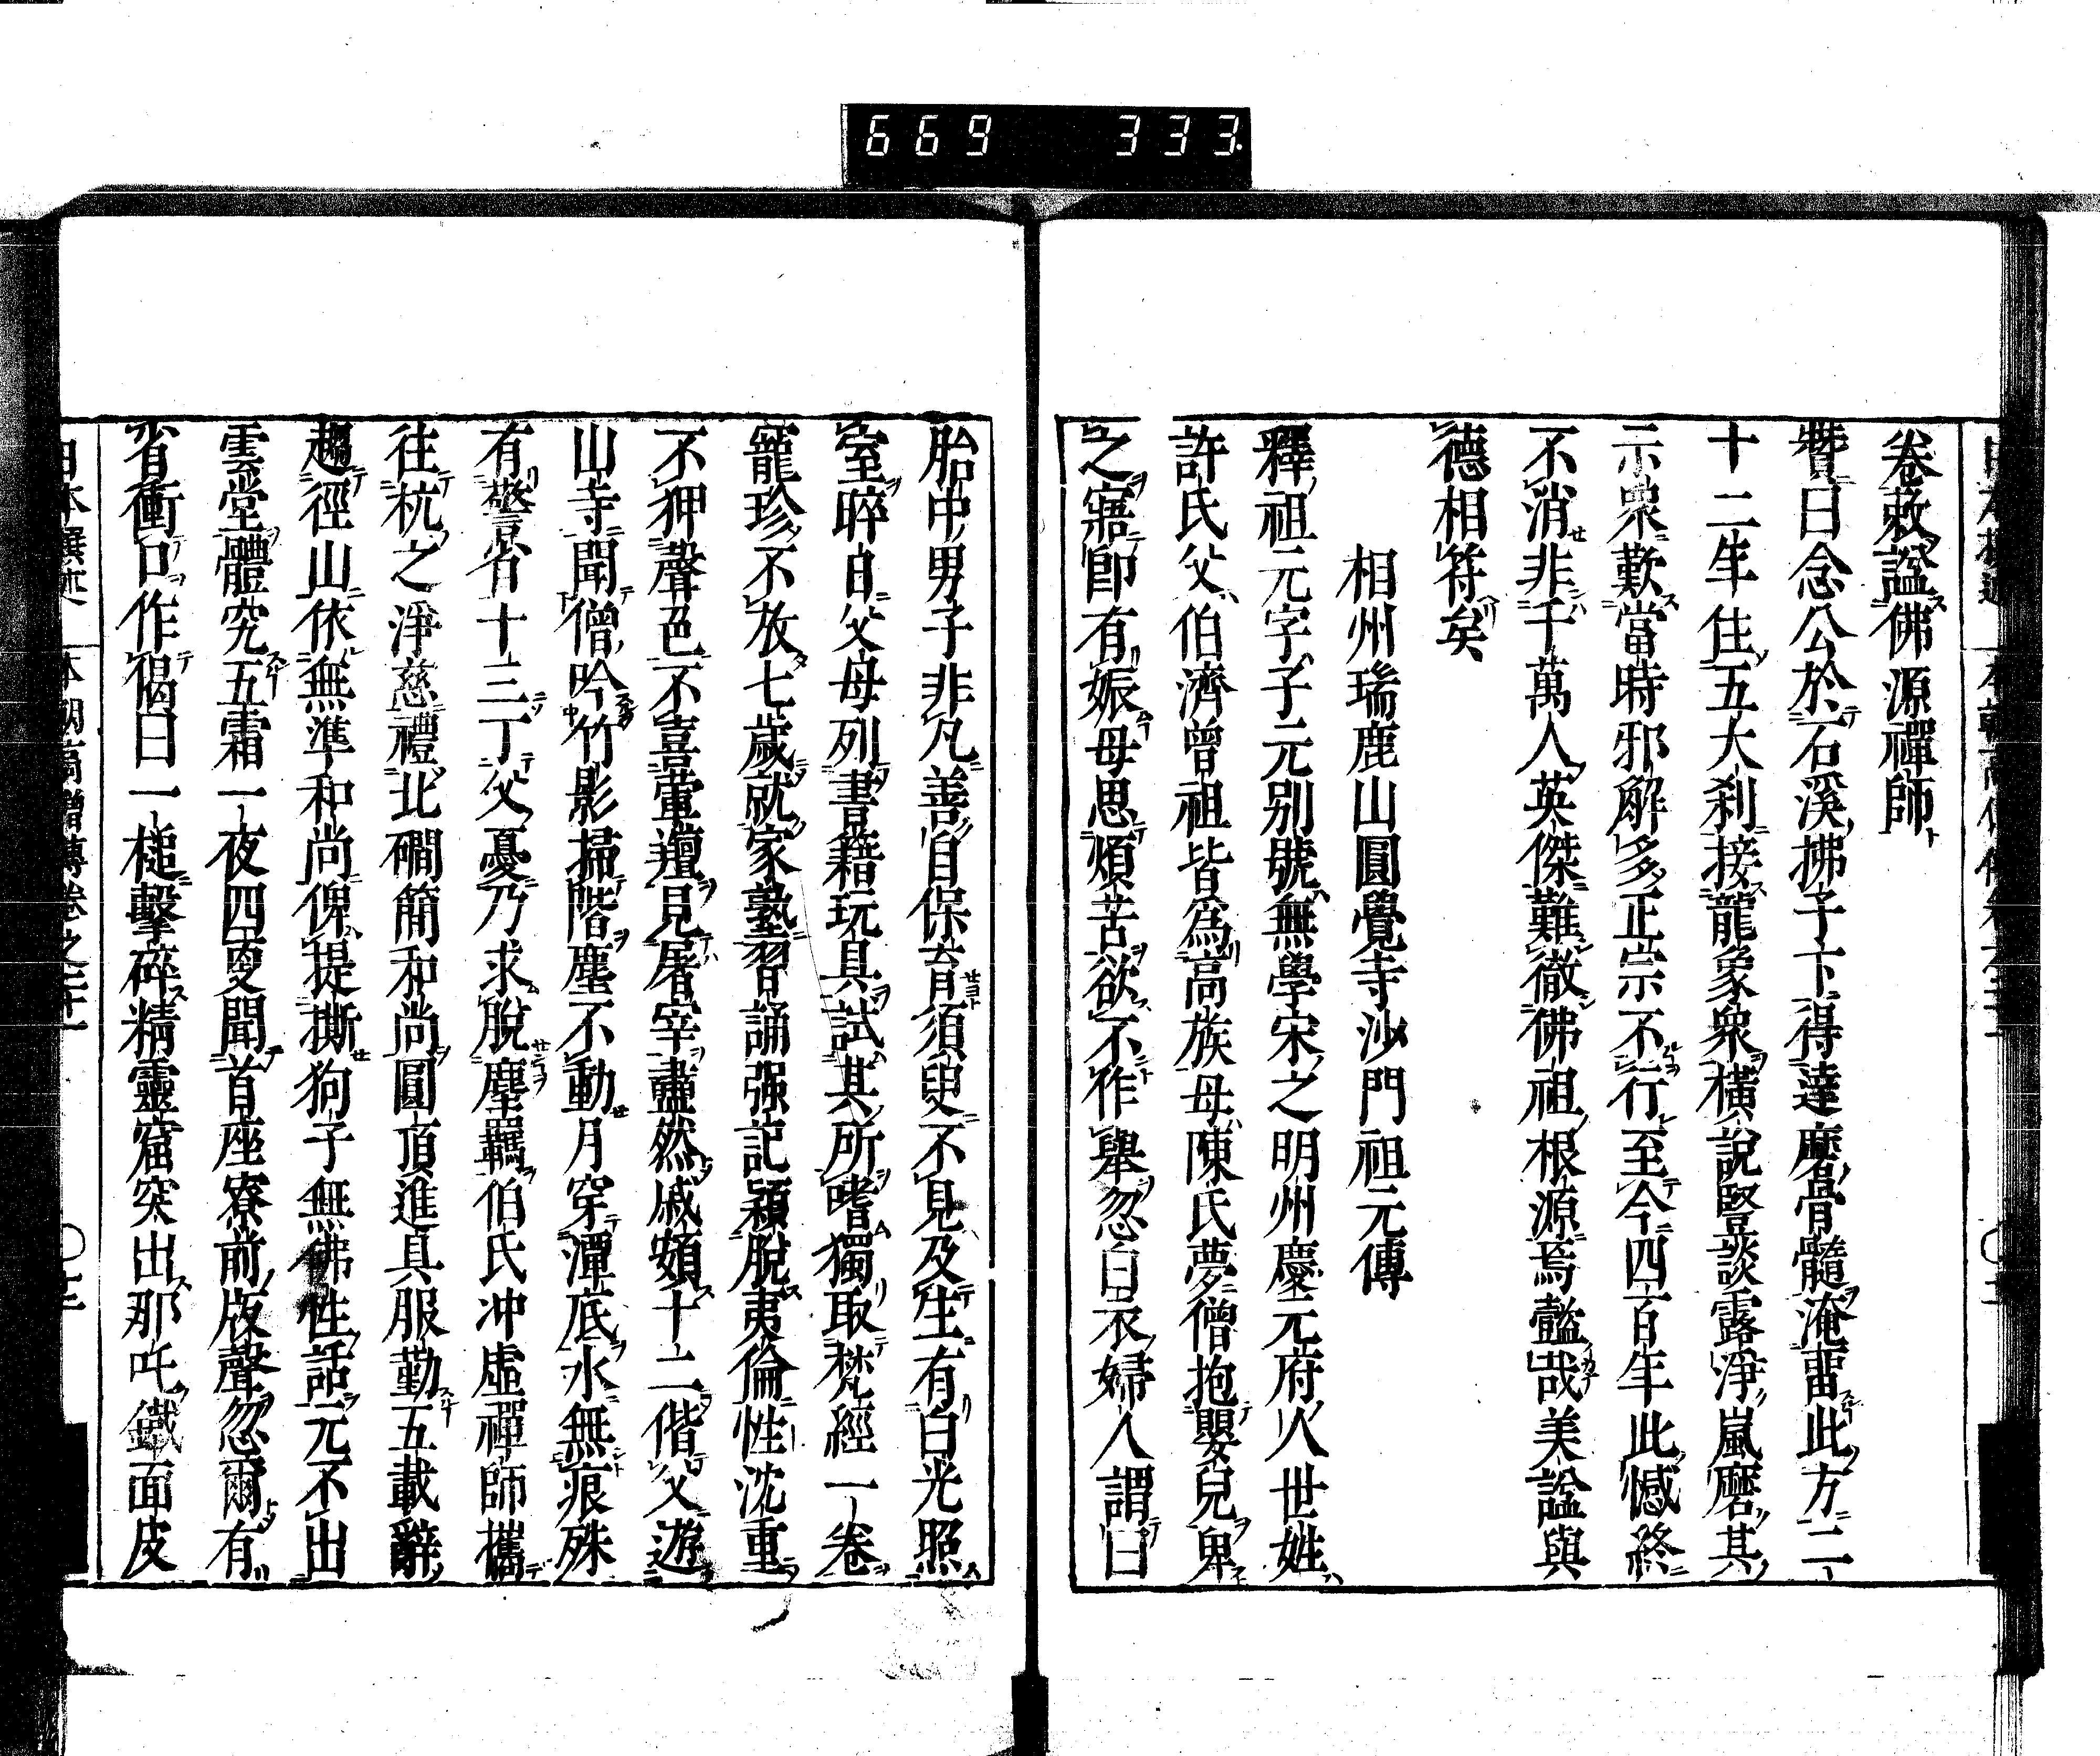 669 333
卷敕諡佛源禪師
贊曰念公於石溪拂子下得達磨骨髓淹畱此方二
十二年住五大刹接龍象衆橫說豎談露淨嵐磨其
示衆歎當時邪解多正宗不行至今四百年此憾終
不消非千萬人英傑難徹佛祖根源焉懿哉美諡與
德相符矣
相州瑞鹿山圓覺寺沙門祖元傳
釋祖元字子元別號無學宋之明州慶元府人世姓
許氏父伯濟曾祖皆爲高族母陳氏夢僧抱嬰兒卑
之寤卽有娠母思煩苦欲不作舉忽白衣婦人謂曰
胎中男子非凡善自保育須臾不見及生有白光照
室晬日父母列書籍玩具試其所嗜獨取梵經一卷
寵珍不放七歲就家塾習誦强記穎脫夷倫性沈重
不狎聲色不喜葷羶見屠宰盡然戚頞十二偕父遊
山寺聞僧吟竹影掃階塵不動月穿潭底水無痕殊
有警省十三丁父憂乃求脫塵羈伯氏冲虛禪師攜
往杭之淨慈禮北磵簡和尚圓頂進具服勤五載辭
趨徑山依無準和尚俾提撕狗子無佛性話元不出
雲堂體究五霜一夜四更聞首座寮前版聲忽爾有
省衝口作偈曰一槌擊碎精靈窟突出那吒鐵面皮
日本撰述 本朝高僧傳卷之二十一